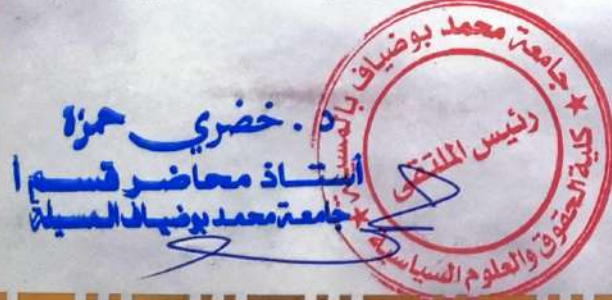 د. خضري حمزة
أستاذ محاضر قسم أ
جامعة محمد بوضياف المسيلة
جامعة محمد بوضياف بالمسيلة
كلية الحقوق والعلوم السياسية
رئيس الملتقى